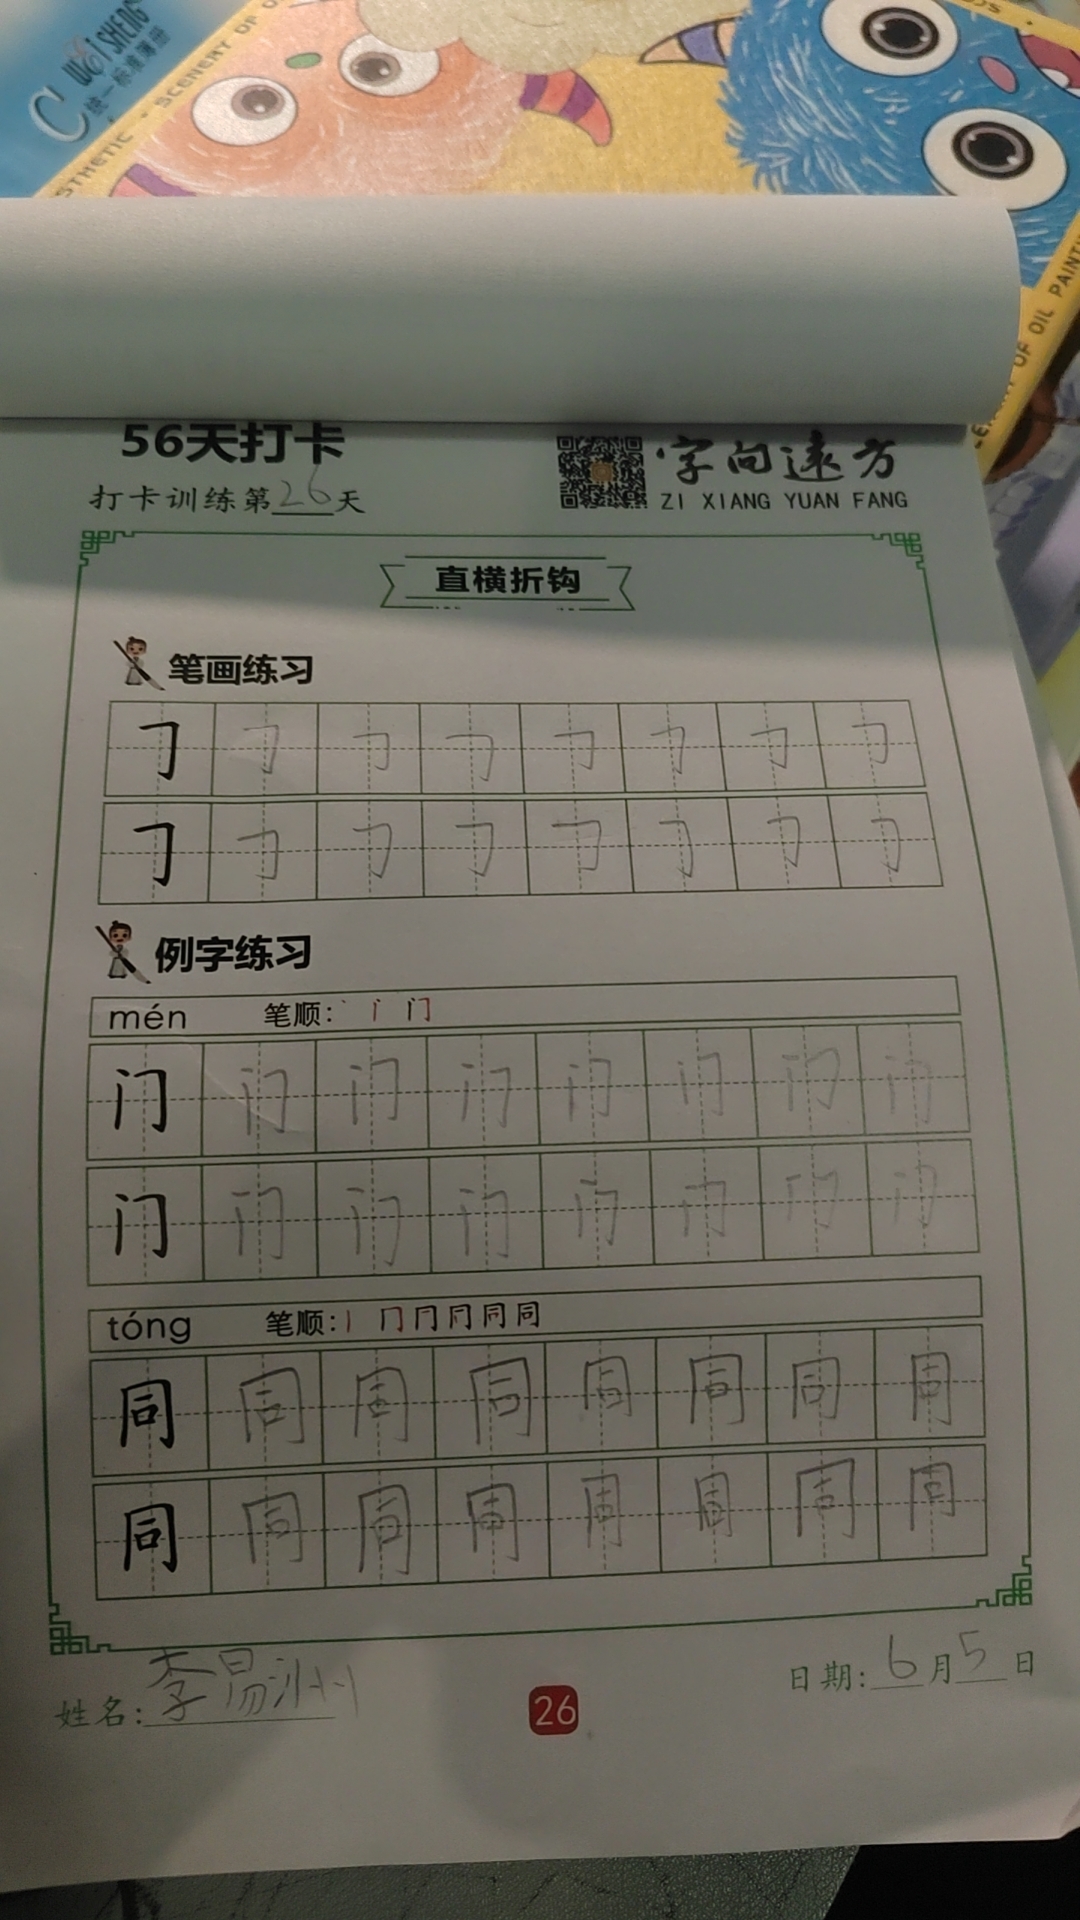 CuiShENG
统一标准簿册
STHETIC • SCENERY OF O
OF OIL PAINTI
56天打卡
字向远方
打卡训练第26天
ZI XIANG YUAN FANG
直横折钩
笔画练习
㇆ ㇆ ㇆ ㇆ ㇆ ㇆ ㇆ ㇆
㇆ ㇆ ㇆ ㇆ ㇆ ㇆ ㇆ ㇆
例字练习
mén 笔顺: 门
门 门 门 门 门 门 门 门
门 门 门 门 门 门 门 门
tóng 笔顺: 丨 冂 冂 同 同
同 同 同 同 同 同 同 同
同 同 同 同 同 同 同 同
姓名:李易洲
26
日期:6月5日